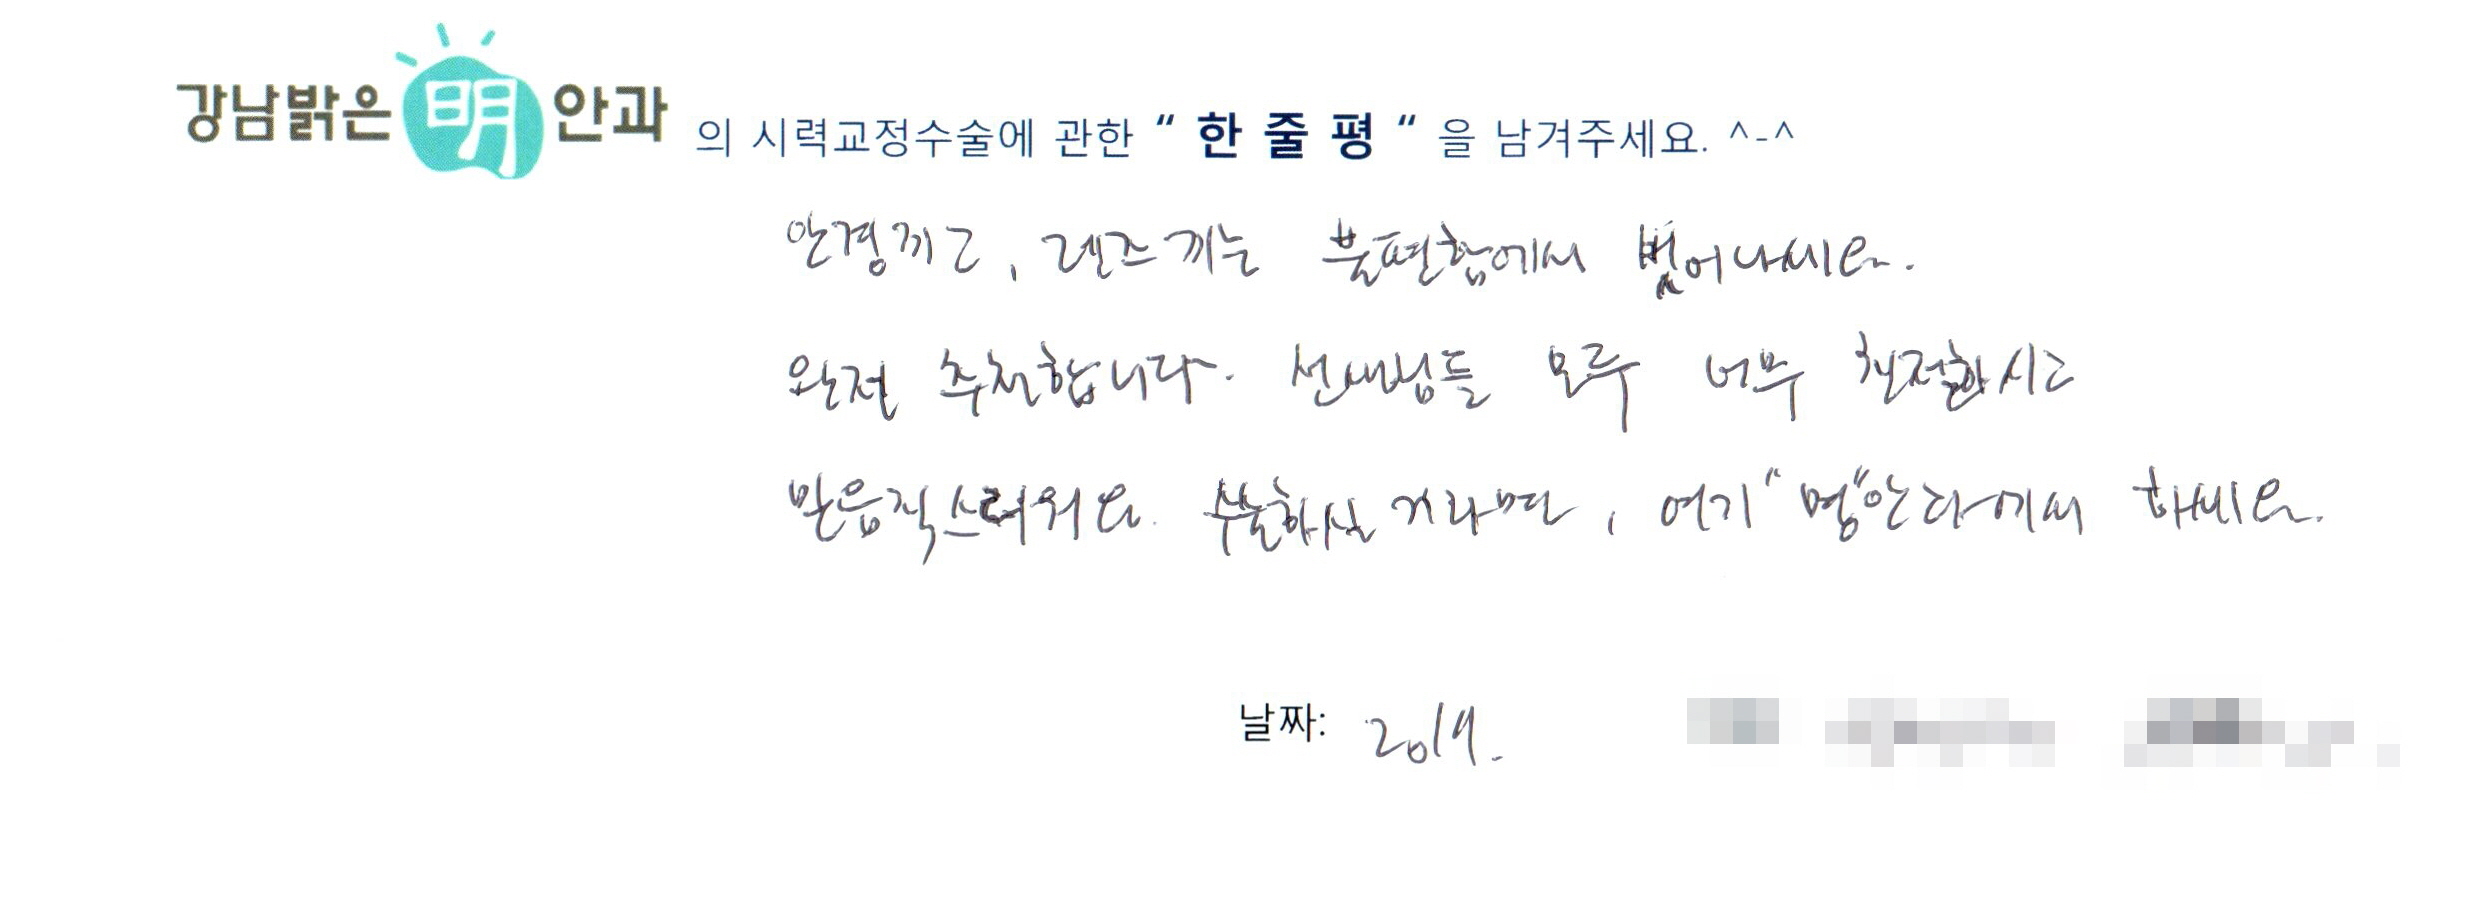 강남밝은明안과 의 시력교정수술에 관한 “ 한 줄 평 “ 을 남겨주세요. ^-^
안경끼고, 렌즈끼는 불편함에서 벗어나세요.
완전 추천합니다. 선생님들 모두 너무 친절하시고
믿음직스러워요. 수술하실거라면, 여기 "명"안과에서 하세요.
날짜: 2019.